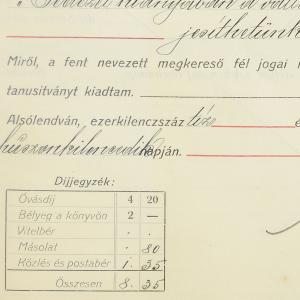 jesíthetünk
Miről, a fent nevezett megkereső fél jogai
tanusítványt kiadtam.
Alsólendván, ezerkilenczszáz tíz
húszonkilencedik napján.
Díjjegyzék:
Óvásdíj 4 20
Bélyeg a könyvön 2 —
Vitelbér . .
Másolat . 80
Közlés és postabér 1. 35
Összesen 8. 35